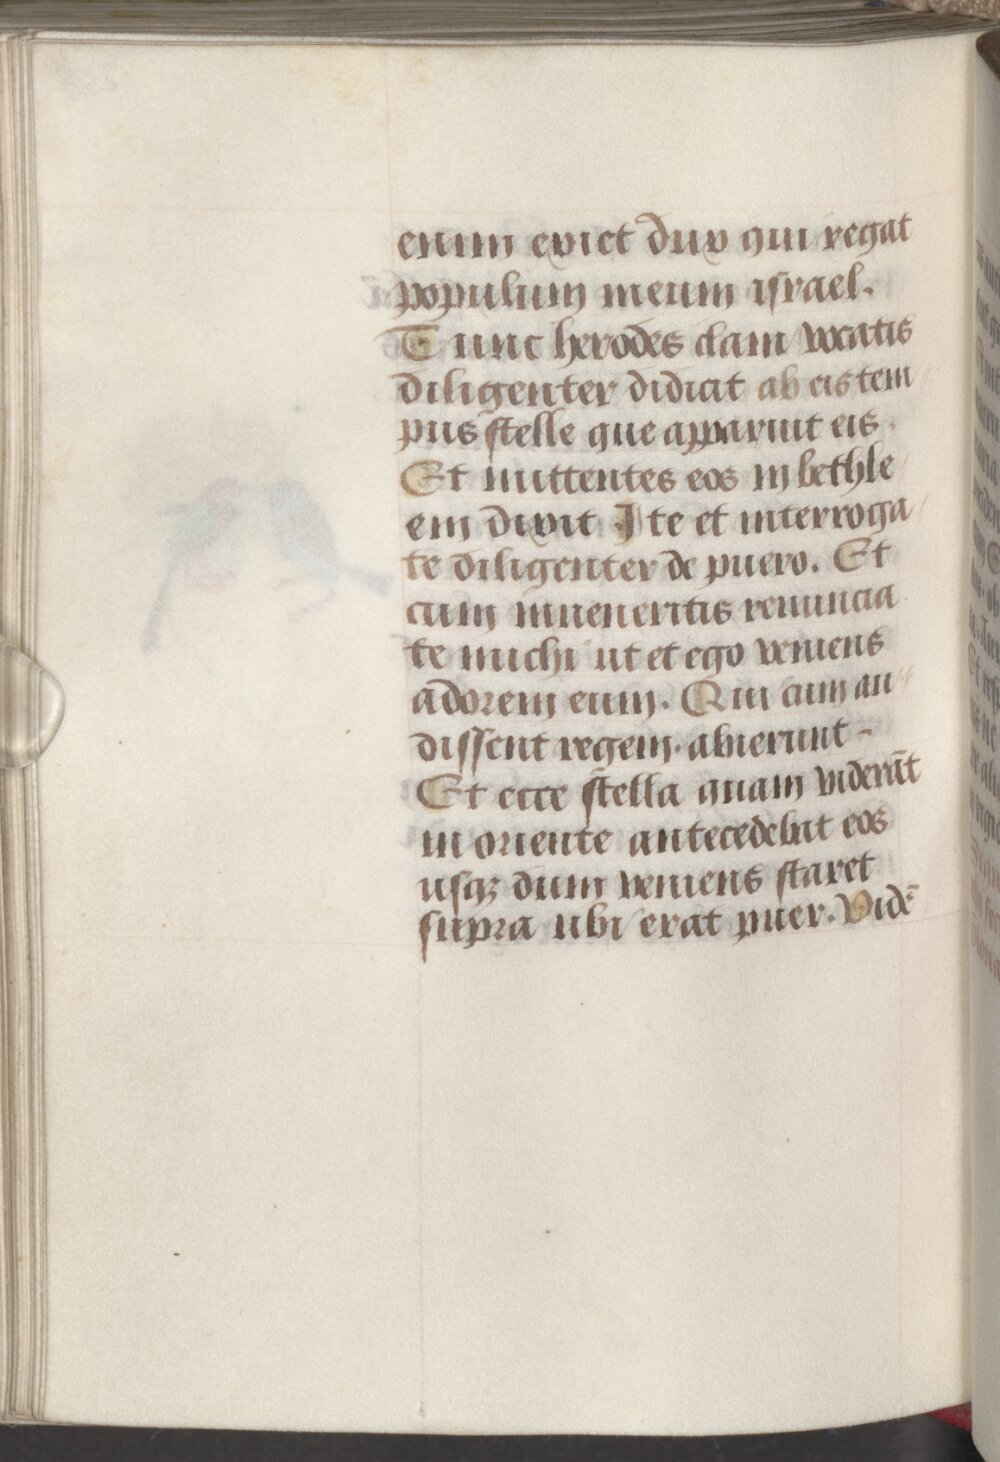 enim exiet dux qui regat
populum meum israel.
Tunc herodes clam vocatis
diligenter didicit ab eis tem
pus stelle que apparuit eis.
Et mittentes eos in bethle
em dixit Ite et interroga
te diligenter de puero. Et
cum inueneritis renuncia
te michi ut et ego veniens
adorem eum. Qui cum au
dissent regem. abierunt
Et ecce stella quam viderāt
in oriente antecedebat eos
usqꝫ dum veniens staret
supra ubi erat puer. Vidē